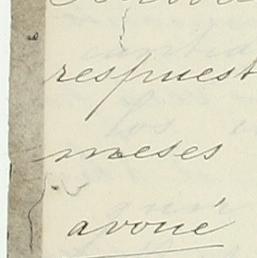 respuest
meses
avoué